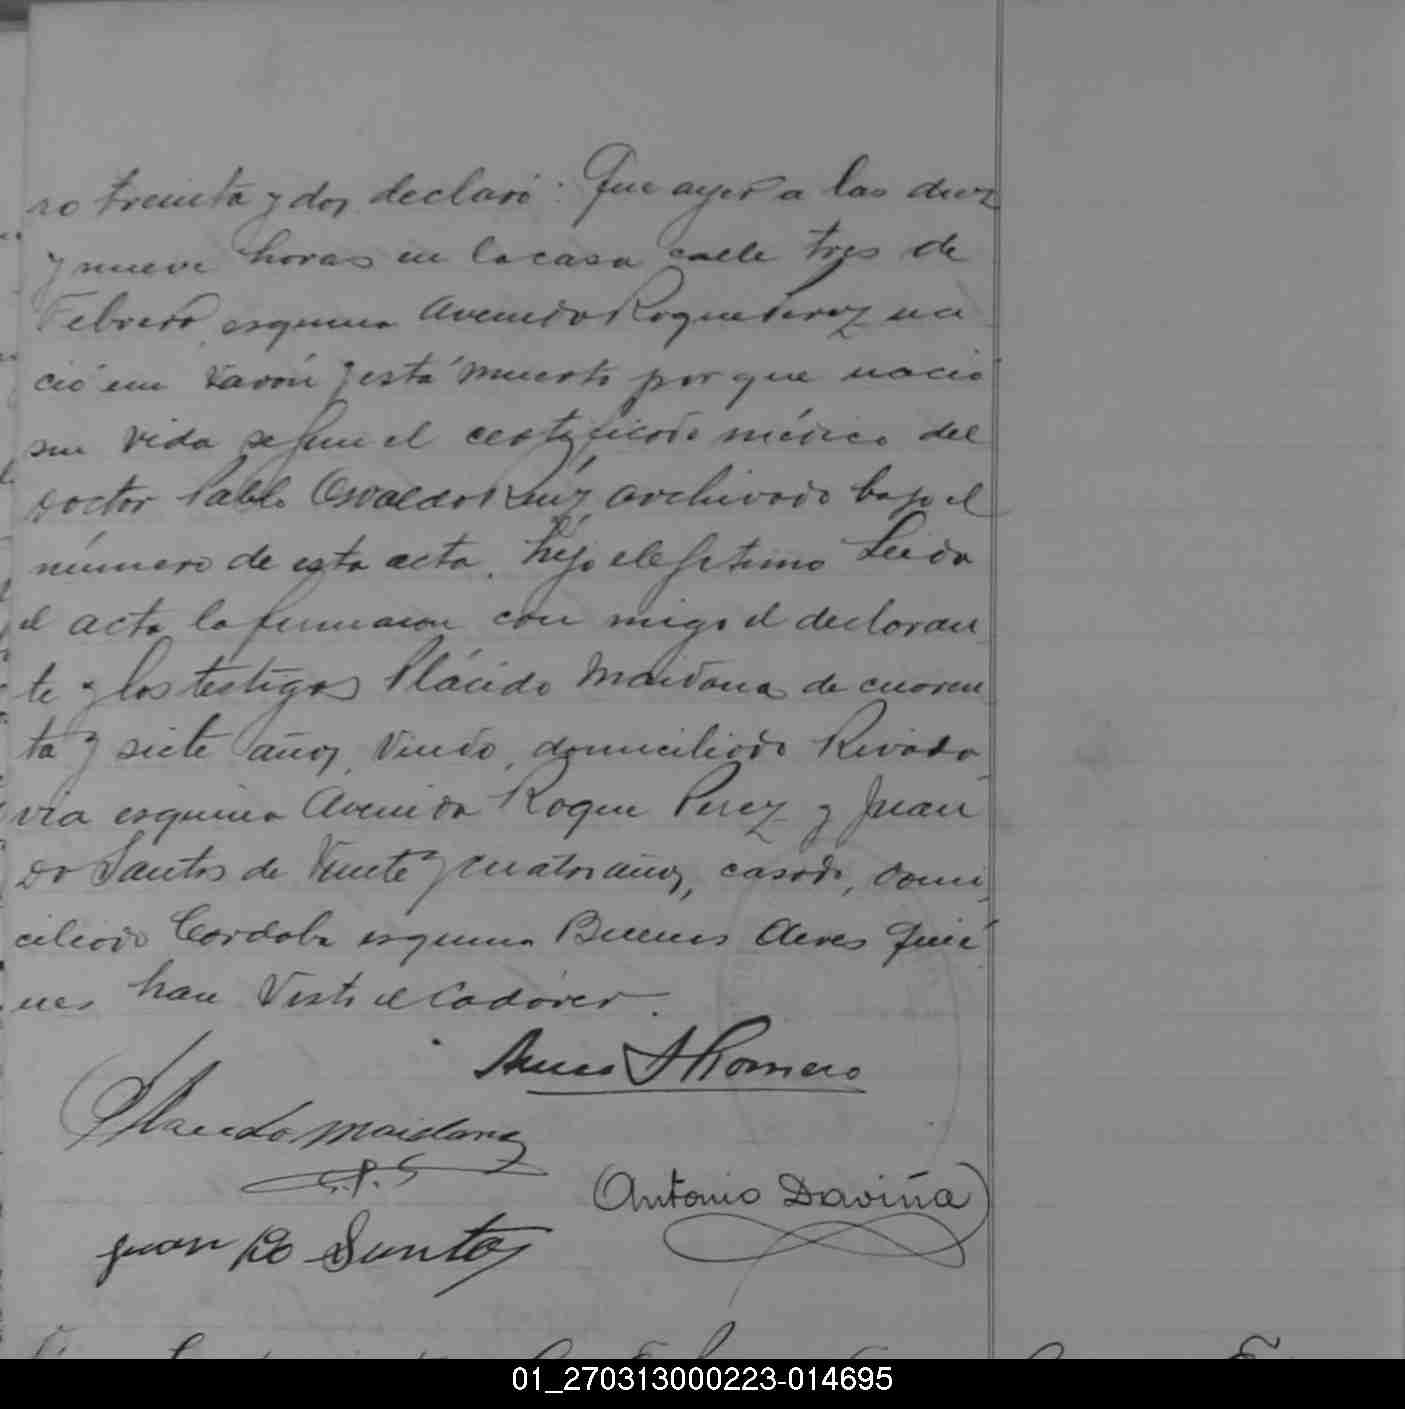 ro treinta y dos declaró: Que ayer a las diez
y nueve horas en la casa calle tres de
Febrero esquina Avenida Roque Perez na
ció un varón y está muerto por que nació
sin vida según el certificado médico del
Doctor Pablo Osvaldo Ruíz archivado bajo el
número de esta acta. hijo ilegítimo Leida
el acta la firmaron con migo el declaran
te y los testigos Plácido Maidana de cuaren
ta y siete años, viudo, domiciliado Rivada
via esquina Avenida Roque Perez y Juan
Do Santos de veinte y cuatro años, casado, domi
ciliado Cordoba esquina Buenos Aires quié
nes han visto el Cadáver.
Romero
Placido Maidana
Antonio Daviña
Juan Do Santos
01_270313000223-014695